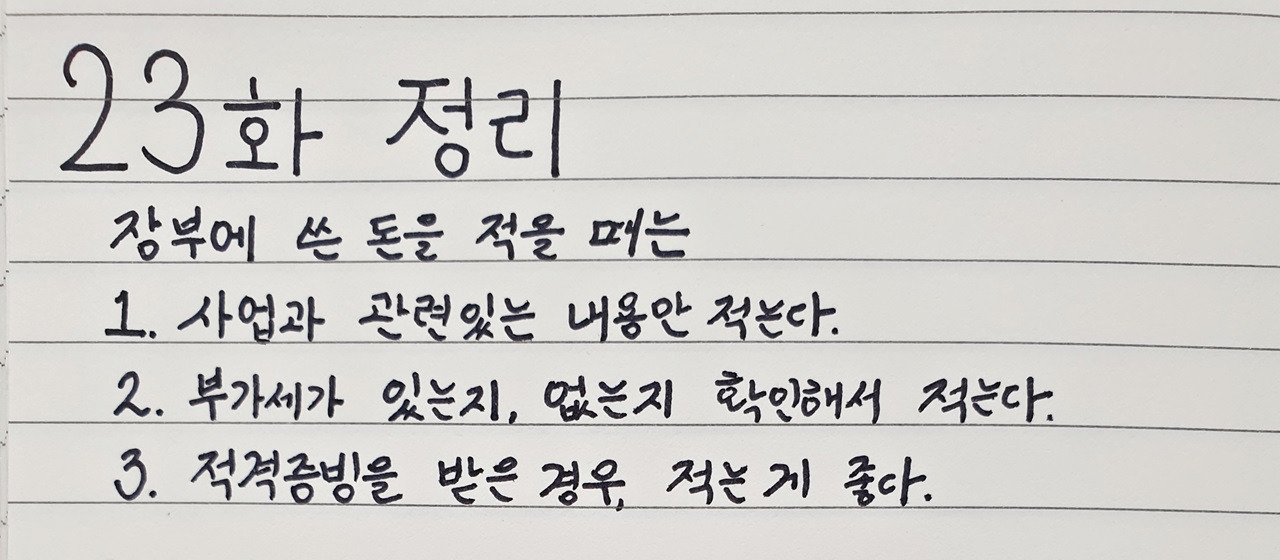 23화 정리
장부에 쓴 돈을 적을 때는
1. 사업과 관련있는 내용만 적는다.
2. 부가세가 있는지, 없는지 확인해서 적는다.
3. 적격증빙을 받은 경우, 적는 게 좋다.